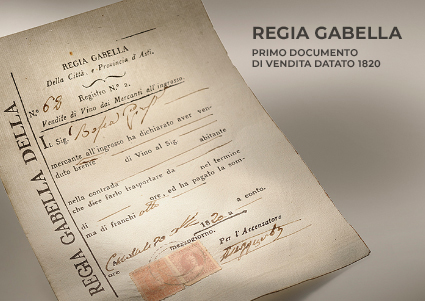 REGIA GABELLA
PRIMO DOCUMENTO
DI VENDITA DATATO 1820
REGIA GABELLA DELLA
REGIA GABELLA
Della Città, e Provincia d'Asti.
Registro N.º 2.
N.º 68
Vendite di Vino dai Mercanti all'ingrosso.
Il Sig.
mercante all'ingrosso ha dichiarato aver ven-
duto brente di Vino al Sig.
abitante
nella contrada
che dice farlo trasportare da nel termine
di ore, ed ha pagato la som-
ma di franchi otto a conto.
1820
ore mezzogiorno.
Per l'Accensatore